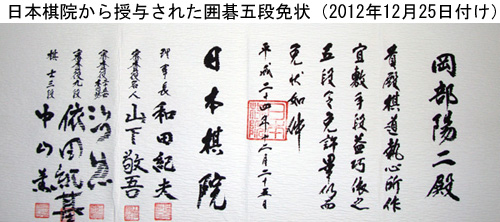 日本棋院から授与された囲碁五段免状（2012年12月25日付け）
岡部陽二殿
貴殿棋道執心所作
宜敷手段益巧依之
五段令免許畢仍而
免状如件
平成二十四年十二月二十五日
日本棋院
理事長 和田紀夫
名人 山下敬吾
治勲
九段 依田紀基
棋士三段 中山薫